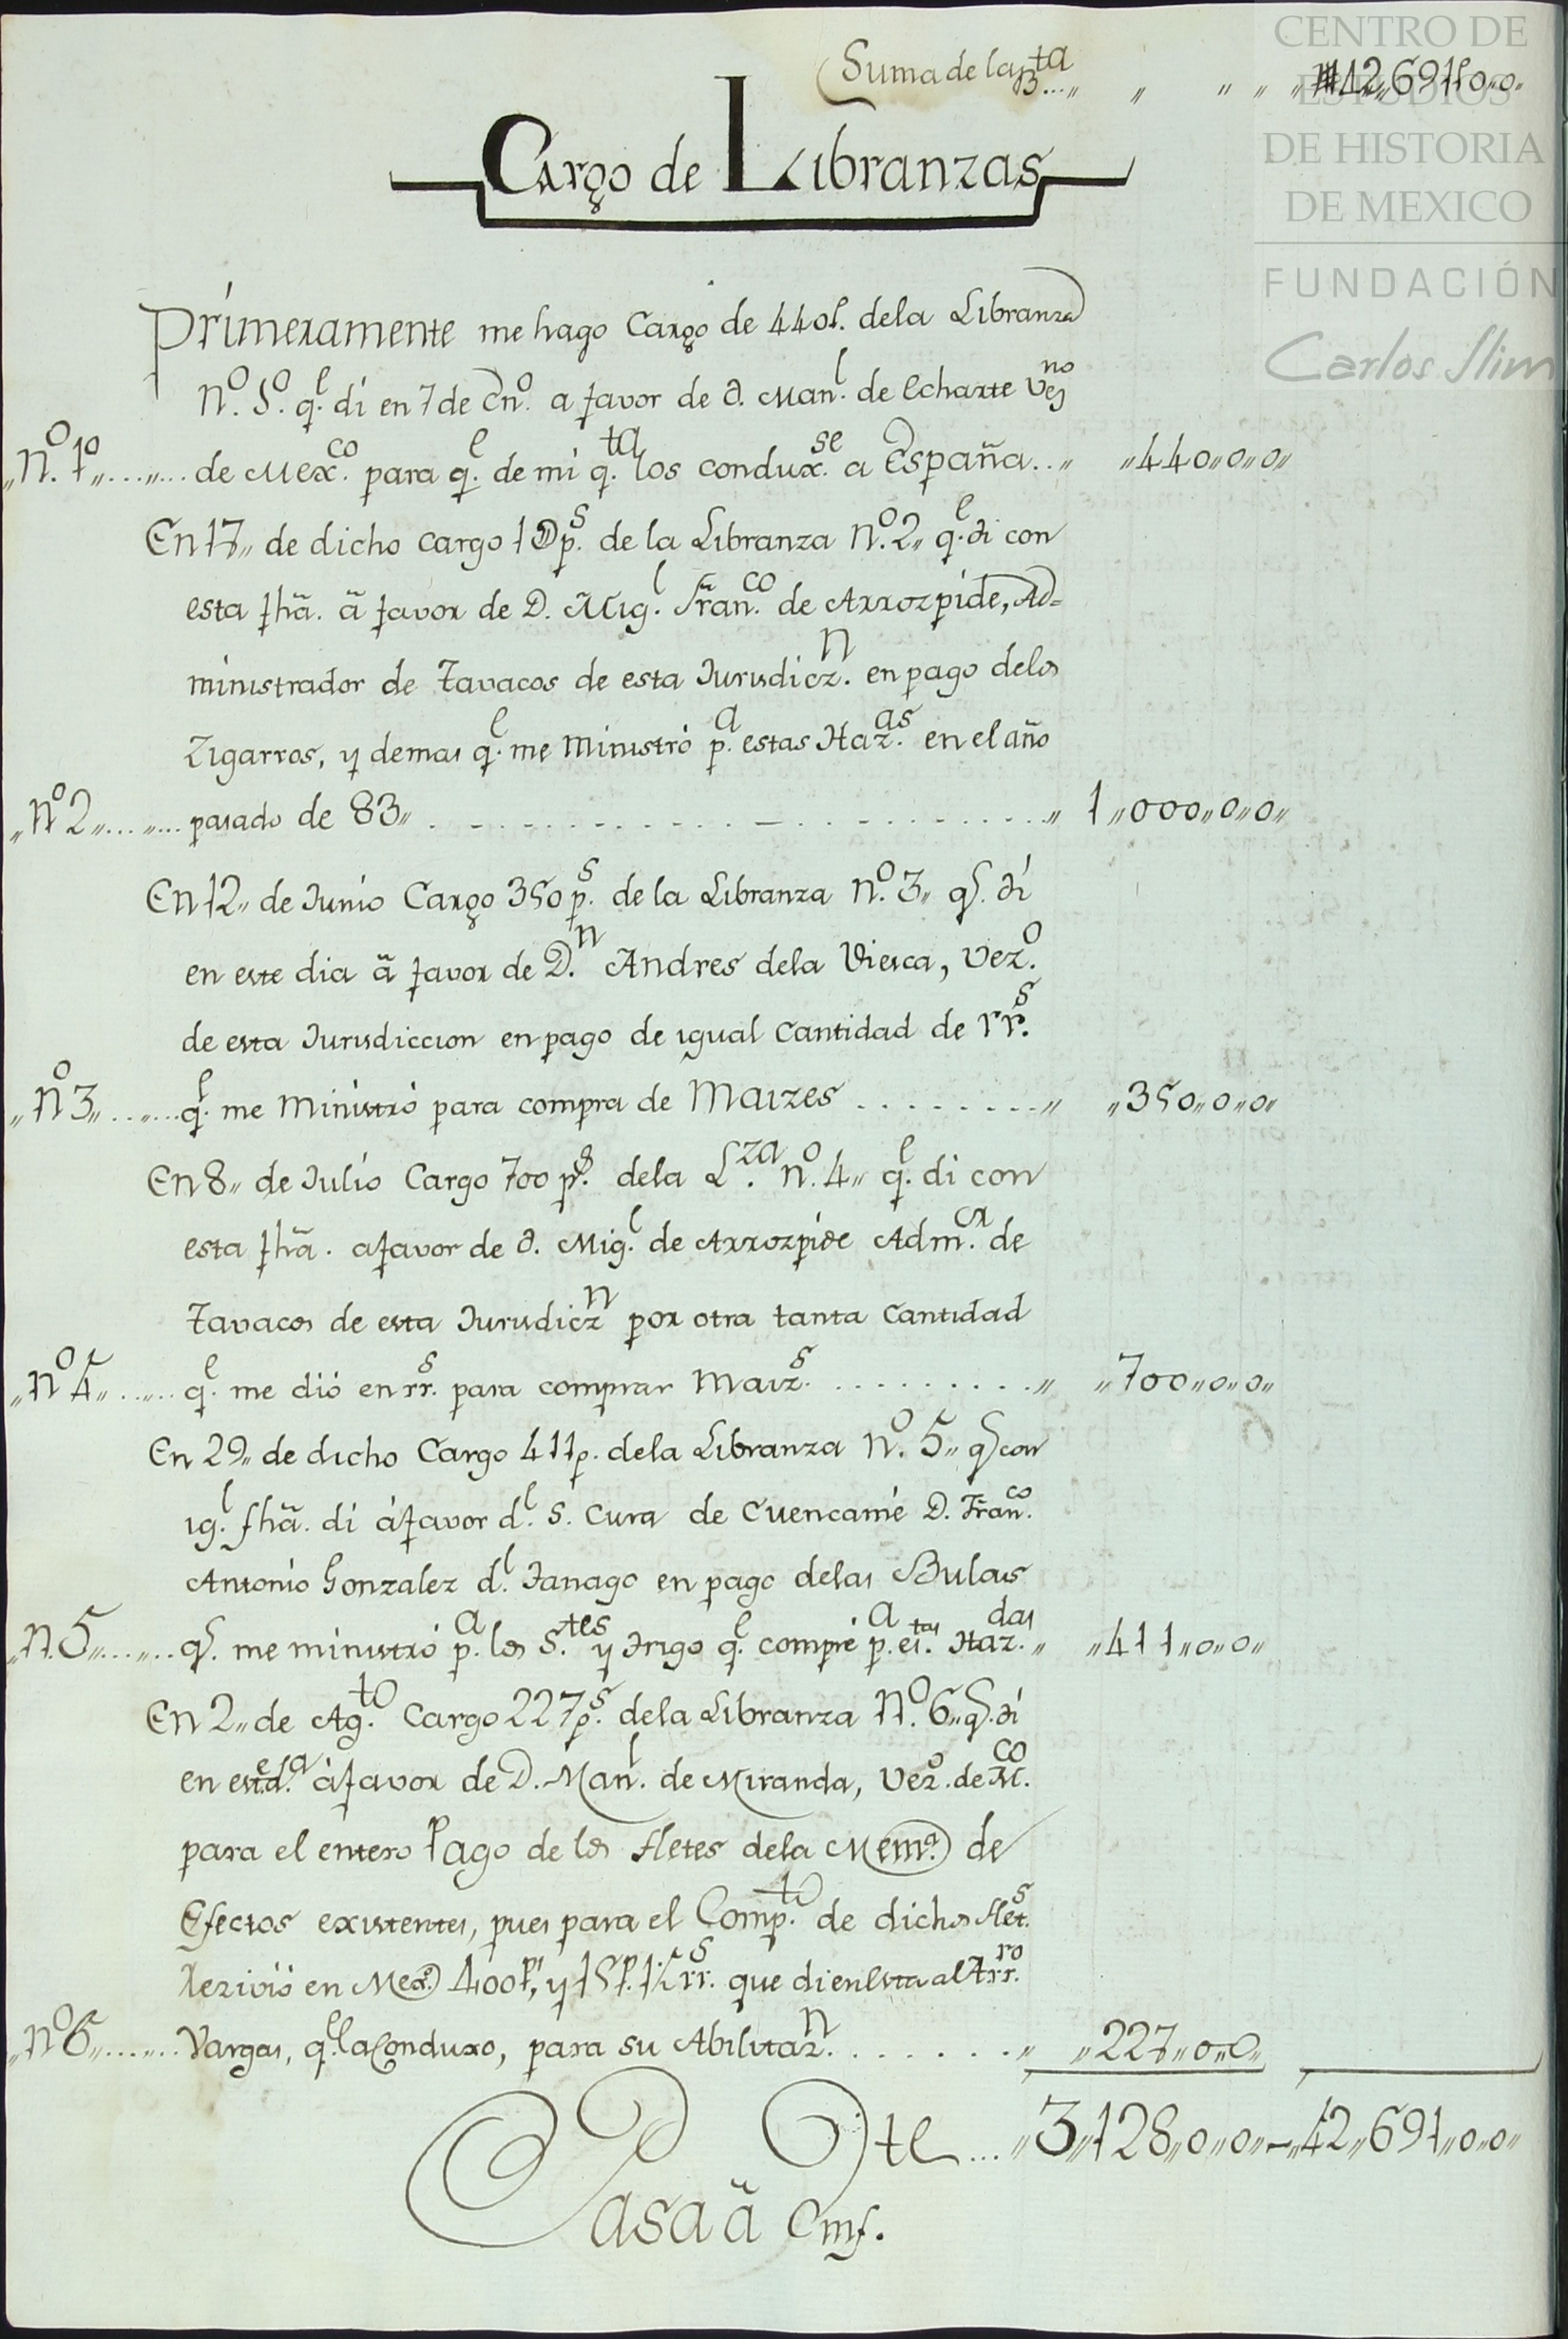 Suma de la b.ta ...,, ,, ,, ,, ,, 12,,691,,0,,0,,
CENTRO DE
ESTUDIOS
DE HISTORIA
DE MEXICO
FUNDACIÓN
Carlos Slim
Cargo de Libranzas
Primeramente me hago Cargo de 440p. dela Libranza
N.o 1.o q.e di en 7 de En.o a favor de d. Man.l de Echarte Vez.no
,,N.o 1.o,,....,,... de Mex.co para q.e de mi q.ta los condux.se a España..,, ,,440,,0,,0,,
En 17,, de dicho cargo 1Dp.s de la Libranza N.o 2,, q.e di con
esta fhã. ã favor de D. Mig.l Frãn.co de Arrozpide, Ad=
ministrador de Tavacos de esta Jurisdicz.n en pago delos
Zigarros, y demas q.e me Ministró p.a estas Haz.as en el año
,,N.o 2,,....,,... pasado de 83,, . . . . . . . . . . ,, 1,,000,,0,,0,,
En 12,, de Junio Cargo 350p.s de la Libranza N.o 3,, q.e di
en este dia ã favor de D.n Andres dela Viesca, Vez.o
de esta Jurisdiccion en pago de igual Cantidad de rr.s
,,N.o 3,,.....,,... q.e me Ministró para compra de Maizes . . . . . . . . ,, ,,350,,0,,0,,
En 8,, de Julio Cargo 700 p.s dela L.za N.o 4,, q.e di con
esta fhã. afavor de d. Mig.l de Arrozpide Adm.or de
Tavacos de esta Jurisdicz.n por otra tanta Cantidad
,,N.o 4,,......... q.e me dió en rr.s para comprar Maiz.s . . . . . . . . . ,, ,,700,,0,,0,,
En 29,, de dicho Cargo 411p. dela Libranza N.o 5,, q.e con
ig.l fhã. di áfavor d.l S. Cura de Cuencamé D. Frãn.co
Antonio Gonzalez d.l Tanago en pago delas Bulas
,,N.5,,....,,... q.e me ministró p.a los S.tes y trigo q.e compré p.a es.tas Haz.das ,, ,,411,,0,,0,,
En 2,, de Ag.to Cargo 227p.s dela Libranza N.o 6,, q.e di
en este d.a áfavor de D. Man.l de Miranda, Vez.o de M.co
para el entero Pago de los fletes dela Mem.a de
Efectos existentes, pues para el Comp.to de dichos flet.s
rezivió en Mex.co 400p.s, y 15p. 1½ rr.s que di en esta al Arr.ro
,,N.o 6,,....,,... Vargas, q.e la Conduxo, para su Abilitaz.n . . . . . . . ,, ,,227,,0,,0,,
,,3,,128,,0,,0,,-,,12,,691,,0,,0,,
Pasa ã Enf.te ...